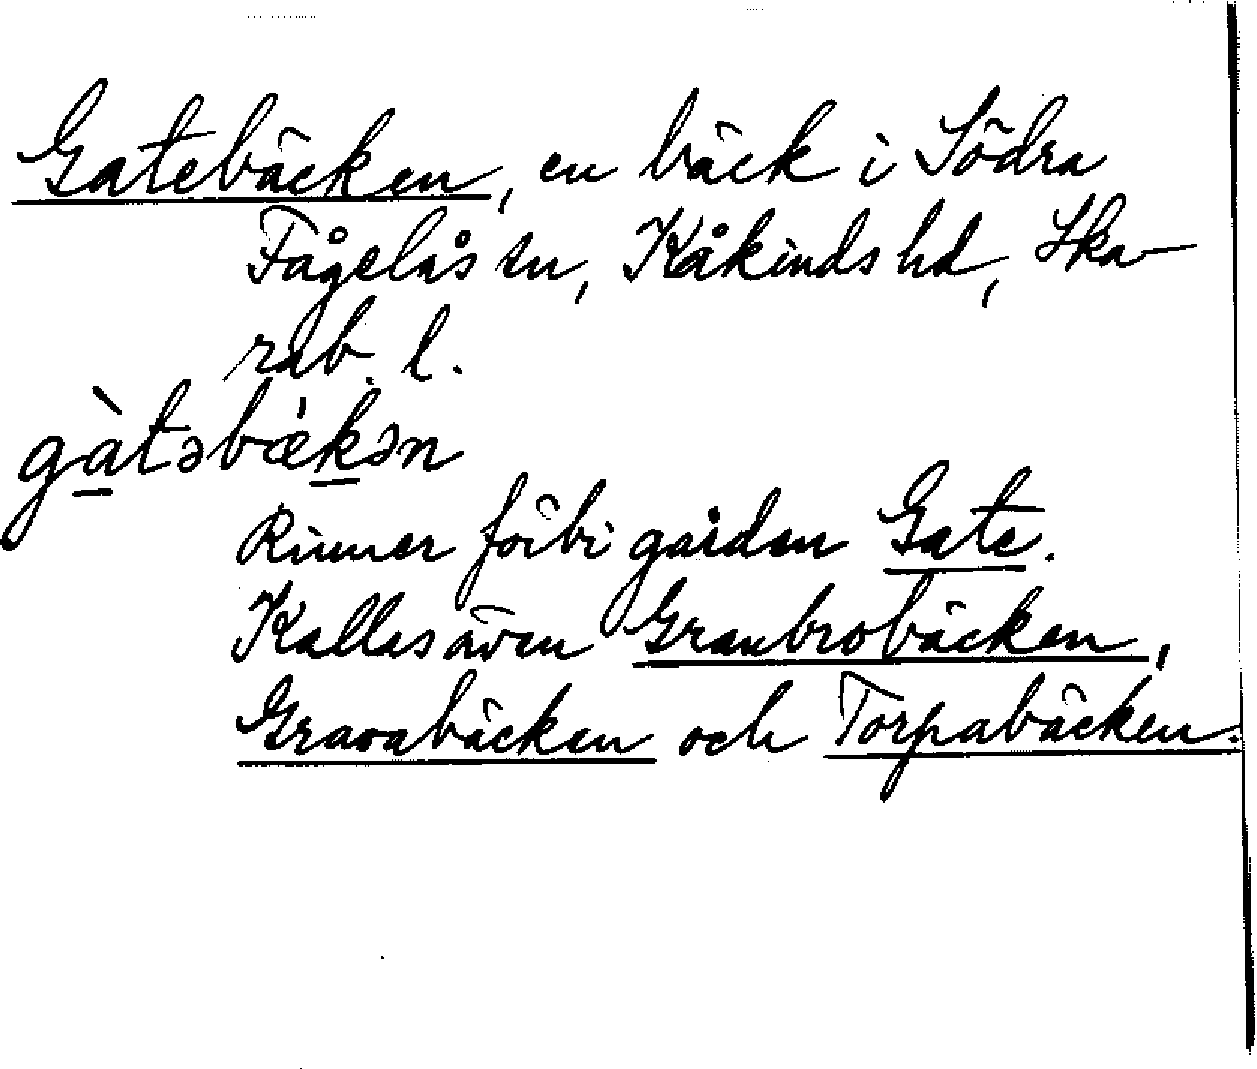 Gatebäcken, en bäck i Södra
Fågelås sn, Kåkinds hd, Ska-
rab. l.
gàtəbæ̀kən
Rinner förbi gården Gate.
Kallas även Granbrobäcken,
Gravabäcken och Torpabäcken.